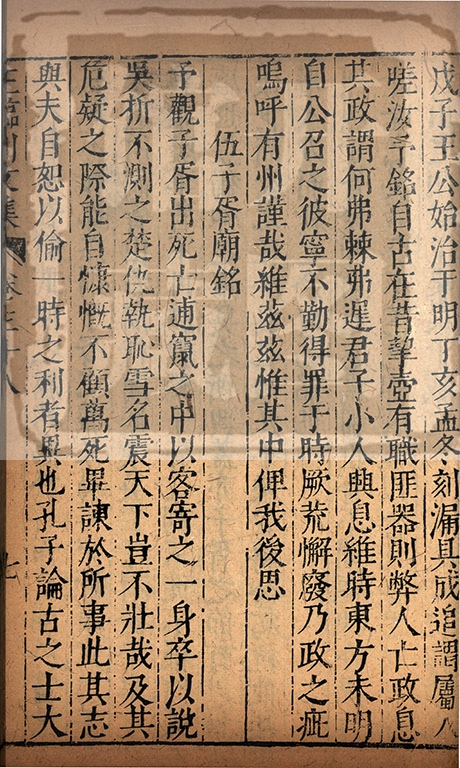 戊子王公始治于明丁亥孟冬刻漏具成追謂屬人
嗟汝予銘自古在昔挈壺有職匪器則弊人亡政息
其政謂何弗棘弗遲君子小人興息維時東方未明
自公召之彼寧不勤得罪于時厥荒懈廢乃政之疵
嗚呼有州謹哉維茲茲惟其中俾我後思
伍子胥廟銘
予觀子胥出死亡逋竄之中以客寄之一身卒以說
吳折不測之楚仇執恥雪名震天下豈不壯哉及其
危疑之際能自慷慨不顧萬死畢諫於所事此其志
與夫自恕以偷一時之利者異也孔子論古之士大
王臨川文集 卷三十八 七